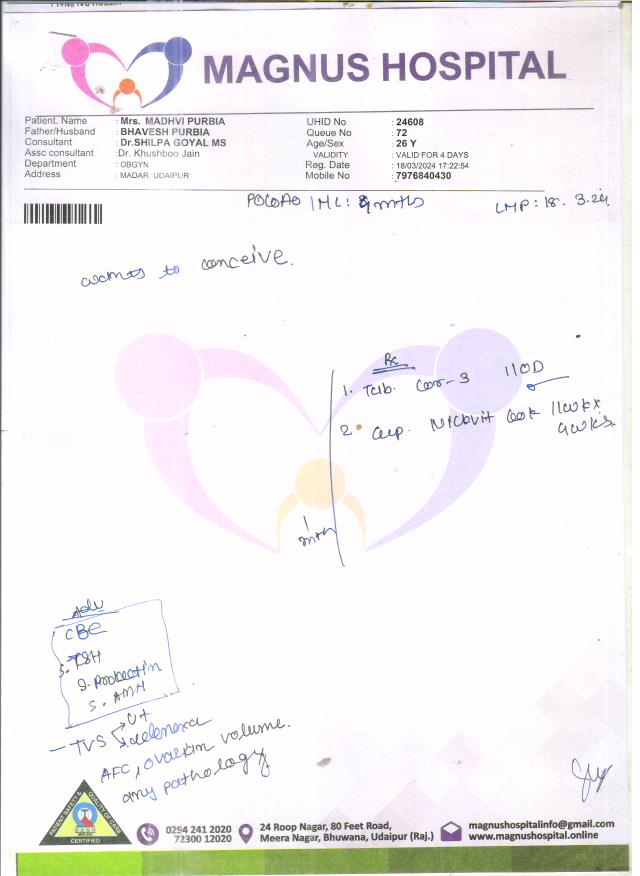 MAGNUS HOSPITAL
Patient. Name : Mrs. MADHVI PURBIA UHID No : 24608
Father/Husband : BHAVESH PURBIA Queue No : 72
Consultant : Dr.SHILPA GOYAL MS Age/Sex : 26 Y
Assc consultant : Dr. Khushboo Jain VALIDITY : VALID FOR 4 DAYS
Department : OBGYN Reg. Date : 18/03/2024 17:22:54
Address : MADAR. UDAIPUR Mobile No : 7976840430
ML: mths LMP: 18. 3.24
wants to conceive.
Rx
1. Tab. 3 1 OD
2. Cap. 60k 1/wk x
wks
1
mth
Adv
CBC
S. TSH
S. Prolactin
S. AMH
- TVS Ut
adenexa
AFC, ovarian volume.
any pathology
PATIENT SAFETY & QUALITY OF CARE
CERTIFIED
0294 241 2020
72300 12020
24 Roop Nagar, 80 Feet Road,
Meera Nagar, Bhuwana, Udaipur (Raj.)
magnushospitalinfo@gmail.com
www.magnushospital.online